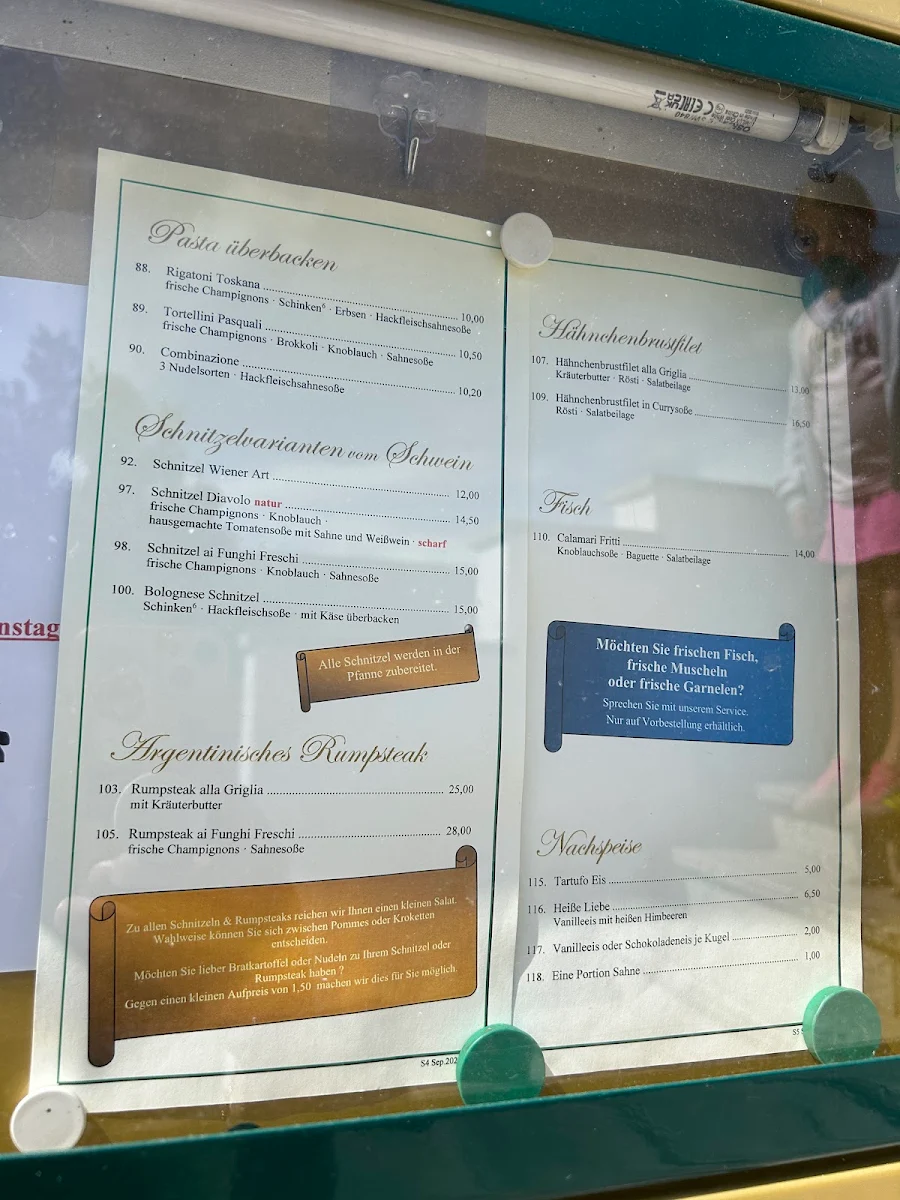 Pasta überbacken
88. Rigatoni Toskana 10,00
frische Champignons · Schinken⁶ · Erbsen · Hackfleischsahnesoße
89. Tortellini Pasquali 10,50
frische Champignons · Brokkoli · Knoblauch · Sahnesoße
90. Combinazione 10,20
3 Nudelsorten · Hackfleischsahnesoße
Schnitzelvarianten vom Schwein
92. Schnitzel Wiener Art 12,00
97. Schnitzel Diavolo natur 14,50
frische Champignons · Knoblauch ·
hausgemachte Tomatensoße mit Sahne und Weißwein · scharf
98. Schnitzel ai Funghi Freschi 15,00
frische Champignons · Knoblauch · Sahnesoße
100. Bolognese Schnitzel 15,00
Schinken⁶ · Hackfleischsoße · mit Käse überbacken
Alle Schnitzel werden in der
Pfanne zubereitet.
Argentinisches Rumpsteak
103. Rumpsteak alla Griglia 25,00
mit Kräuterbutter
105. Rumpsteak ai Funghi Freschi 28,00
frische Champignons · Sahnesoße
Zu allen Schnitzeln & Rumpsteaks reichen wir Ihnen einen kleinen Salat.
Wahlweise können Sie sich zwischen Pommes oder Kroketten
entscheiden.
Möchten Sie lieber Bratkartoffel oder Nudeln zu Ihrem Schnitzel oder
Rumpsteak haben ?
Gegen einen kleinen Aufpreis von 1,50 machen wir dies für Sie möglich.
S4 Sep.202
Hähnchenbrustfilet
107. Hähnchenbrustfilet alla Griglia 13,00
Kräuterbutter · Rösti · Salatbeilage
109. Hähnchenbrustfilet in Currysoße 16,50
Rösti · Salatbeilage
Fisch
110. Calamari Fritti 14,00
Knoblauchsoße · Baguette · Salatbeilage
Möchten Sie frischen Fisch,
frische Muscheln
oder frische Garnelen?
Sprechen Sie mit unserem Service.
Nur auf Vorbestellung erhältlich.
Nachspeise
115. Tartufo Eis 5,00
116. Heiße Liebe 6,50
Vanilleeis mit heißen Himbeeren
117. Vanilleeis oder Schokoladeneis je Kugel 2,00
118. Eine Portion Sahne 1,00
S5
nstag